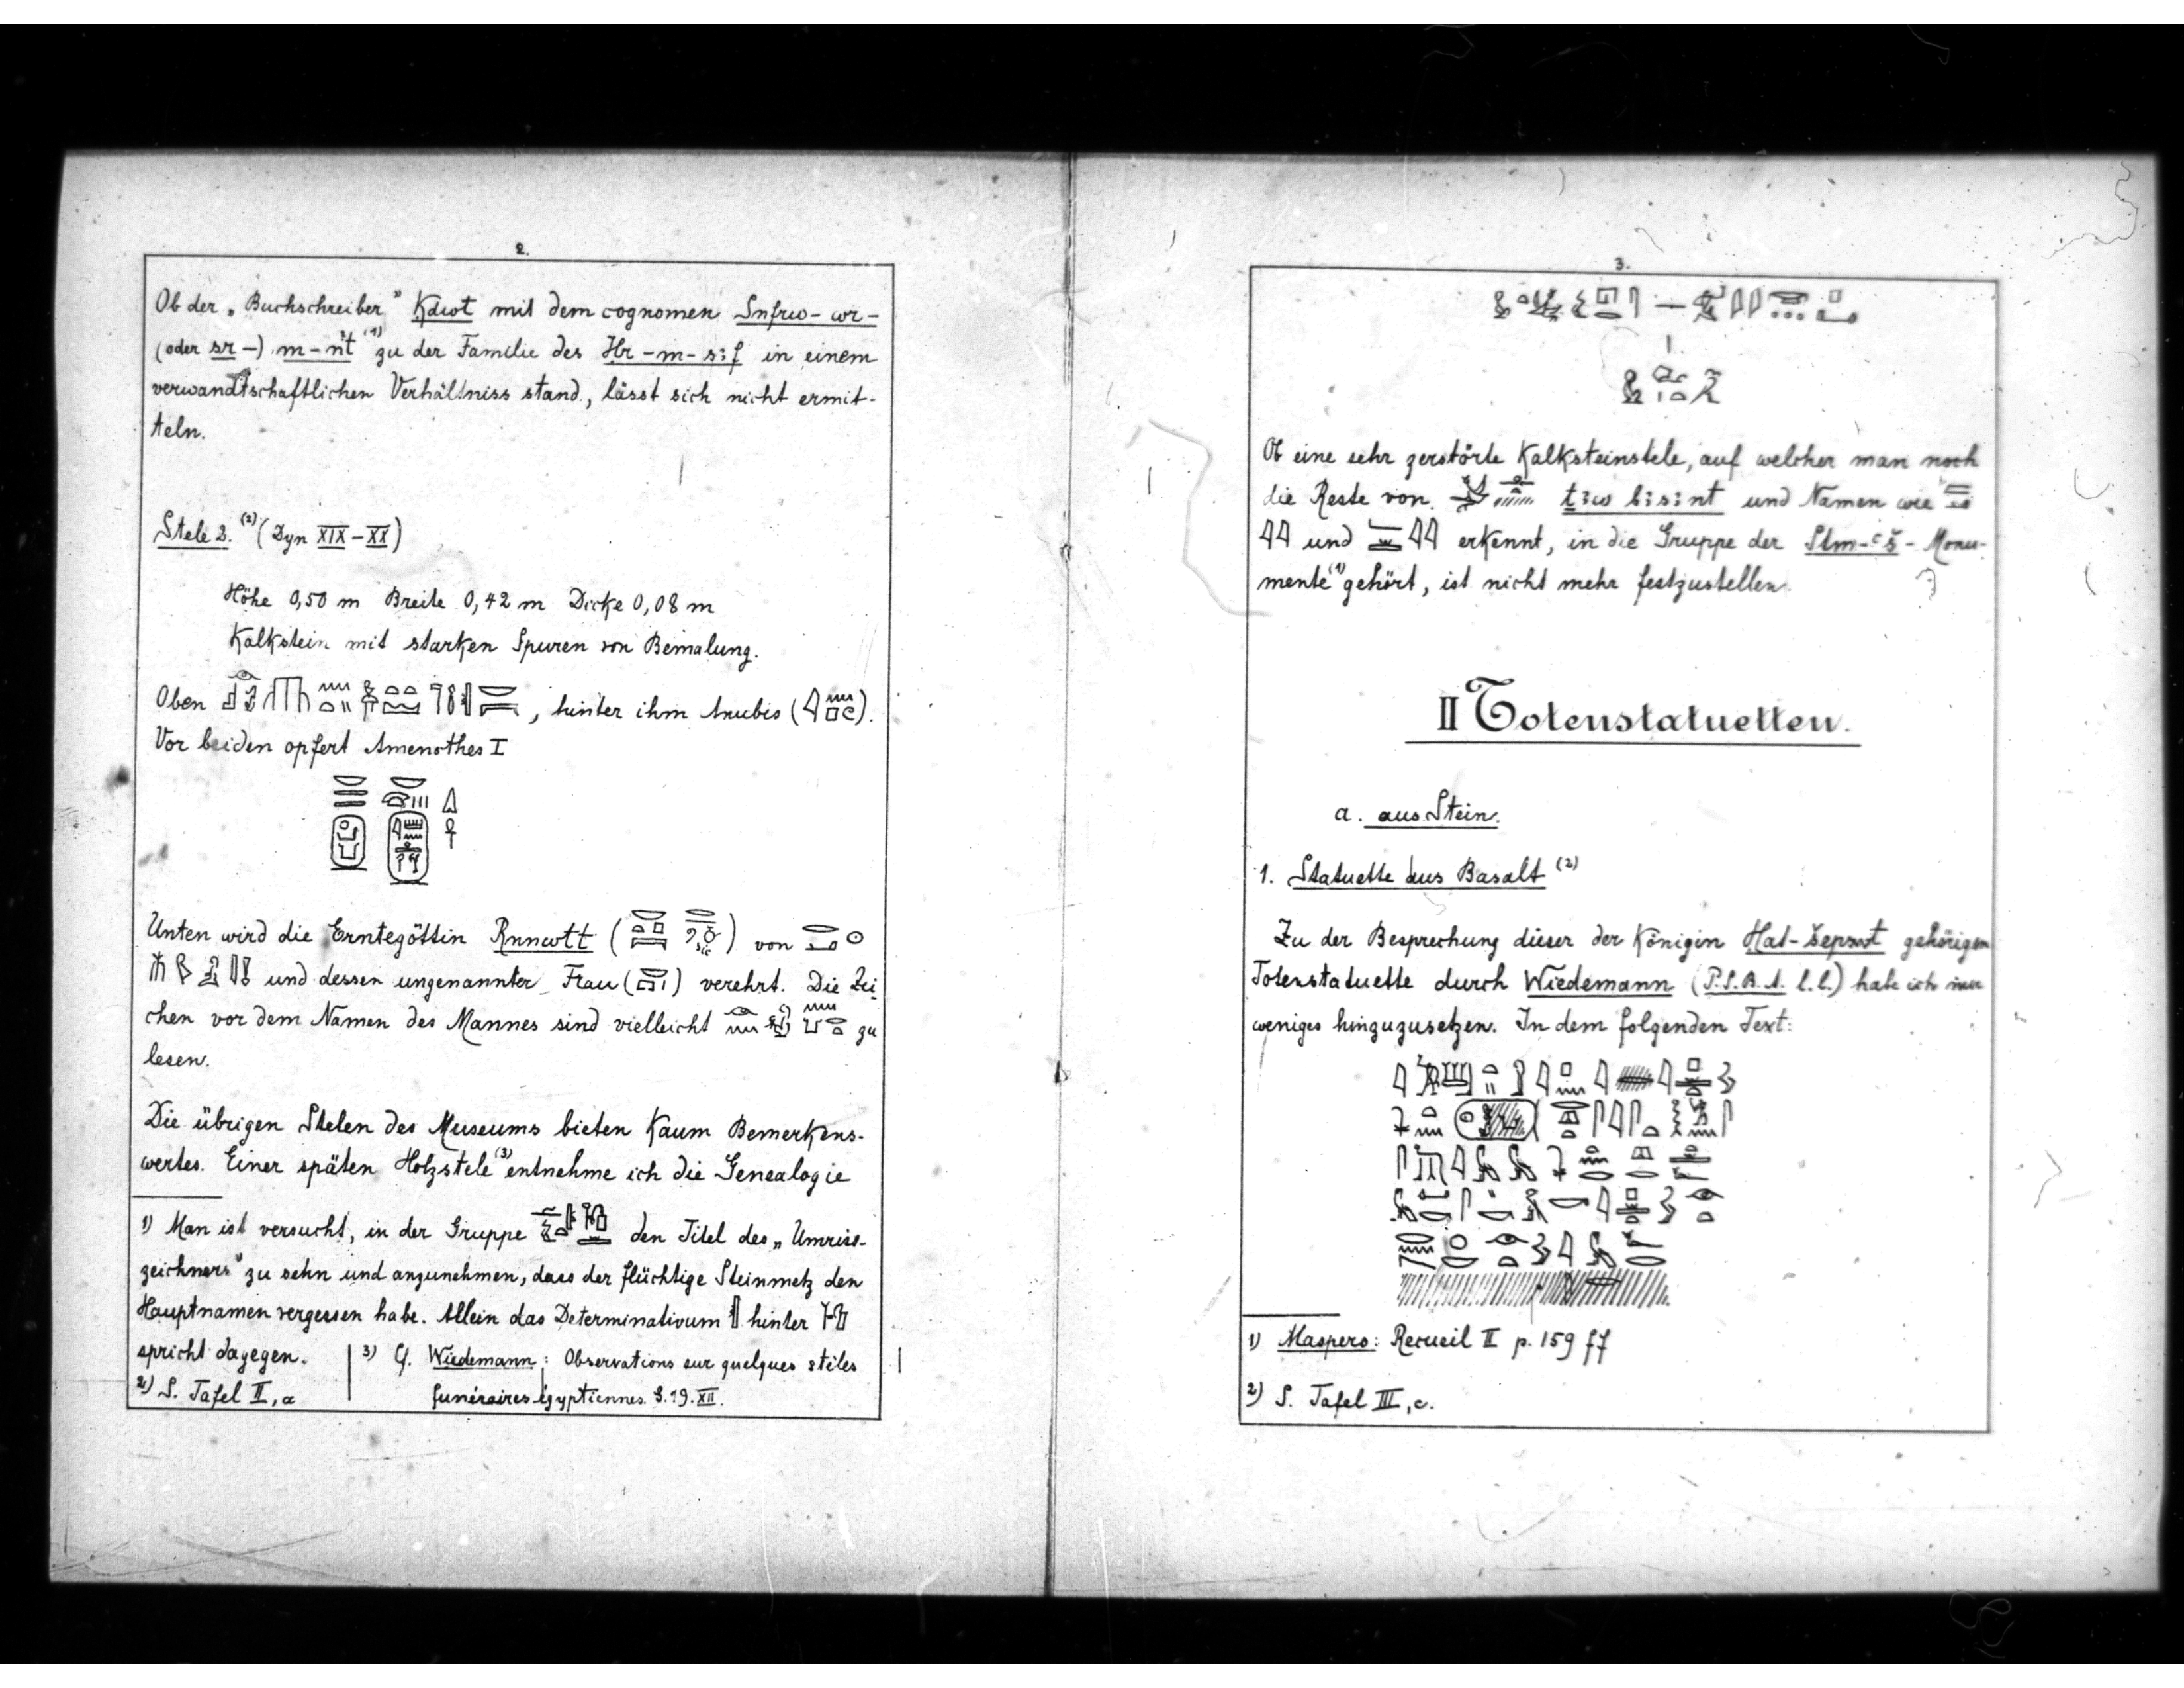 2.
Ob der „Buchschreiber" Kdwt mit dem cognomen Snfrw-wr-
(oder sr-) m-nt (1) zu der Familie des Hr-m-s:f in einem
verwandtschaftlichen Verhältniss stand, lässt sich nicht ermit-
teln.
Stele 2. (2) (Dyn XIX-XX)
Höhe 0,50 m Breite 0,42 m Dicke 0,08 m
Kalkstein mit starken Spuren von Bemalung.
Oben , hinter ihm Anubis ( ).
Vor beiden opfert Amenothes I
Unten wird die Erntegöttin Rnnwtt ( ) von
und dessen ungenannter Frau ( ) verehrt. Die Zei-
chen vor dem Namen des Mannes sind vielleicht zu
lesen.
Die übrigen Stelen des Museums bieten kaum Bemerkens-
wertes. Einer späten Holzstele (3) entnehme ich die Genealogie
1) Man ist versucht, in der Gruppe den Titel des „Umriss-
zeichners" zu sehn und anzunehmen, dass der flüchtige Steinmetz den
Hauptnamen vergessen habe. Allein das Determinativum hinter
spricht dagegen.
2) S. Tafel II, a
3) Cf. Wiedemann: Observations sur quelques stèles
funéraires égyptiennes. S. 19. XII.
3.
Ob eine sehr zerstörte Kalksteinstele, auf welcher man noch
die Reste von t:w b:s:nt und Namen wie
und erkennt, in die Gruppe der Stm-ʿš-Monu-
mente (1) gehört, ist nicht mehr festzustellen.
II Totenstatuetten.
a. aus Stein.
1. Statuette aus Basalt (2)
Zu der Besprechung dieser der Königin Hat-šepsut gehörigen
Totenstatuette durch Wiedemann (P.S.B.A. l.l.) habe ich nur
weniges hinzuzusetzen. In dem folgenden Text:
1) Maspero: Recueil II p. 159 ff
2) S. Tafel III, c.